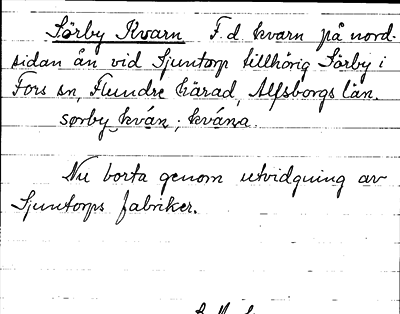 Sörby Kvarn F. d. kvarn på nord-
sidan ån vid Sjuntorp tillhörig Sörby i
Fors sn, Flundre härad, Älfsborgs län.
sørby kván; kvána.
Nu borta genom utvidgning av
Sjuntorps fabriker.